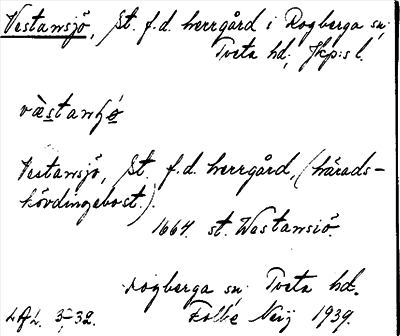 Vestansjö, St. f.d. herrgård i Rogberga sn;
Tveta hd; Jkp:s l.
væ̀stanɧǿ
Vestansjö, St. f.d. herrgård, (härads-
hövdingebost.).
1664. st. Westansiö.
Rogberga sn; Tveta hd.
3-32. Folke Neij 1939.